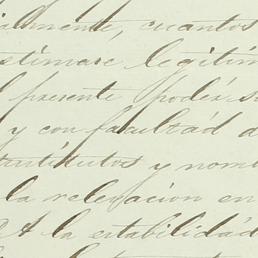 almente, cuantos
estimase legítim
l presente poder s
y con facultad d
tantitutos y nomb
la relevacion en
A la estabilidad